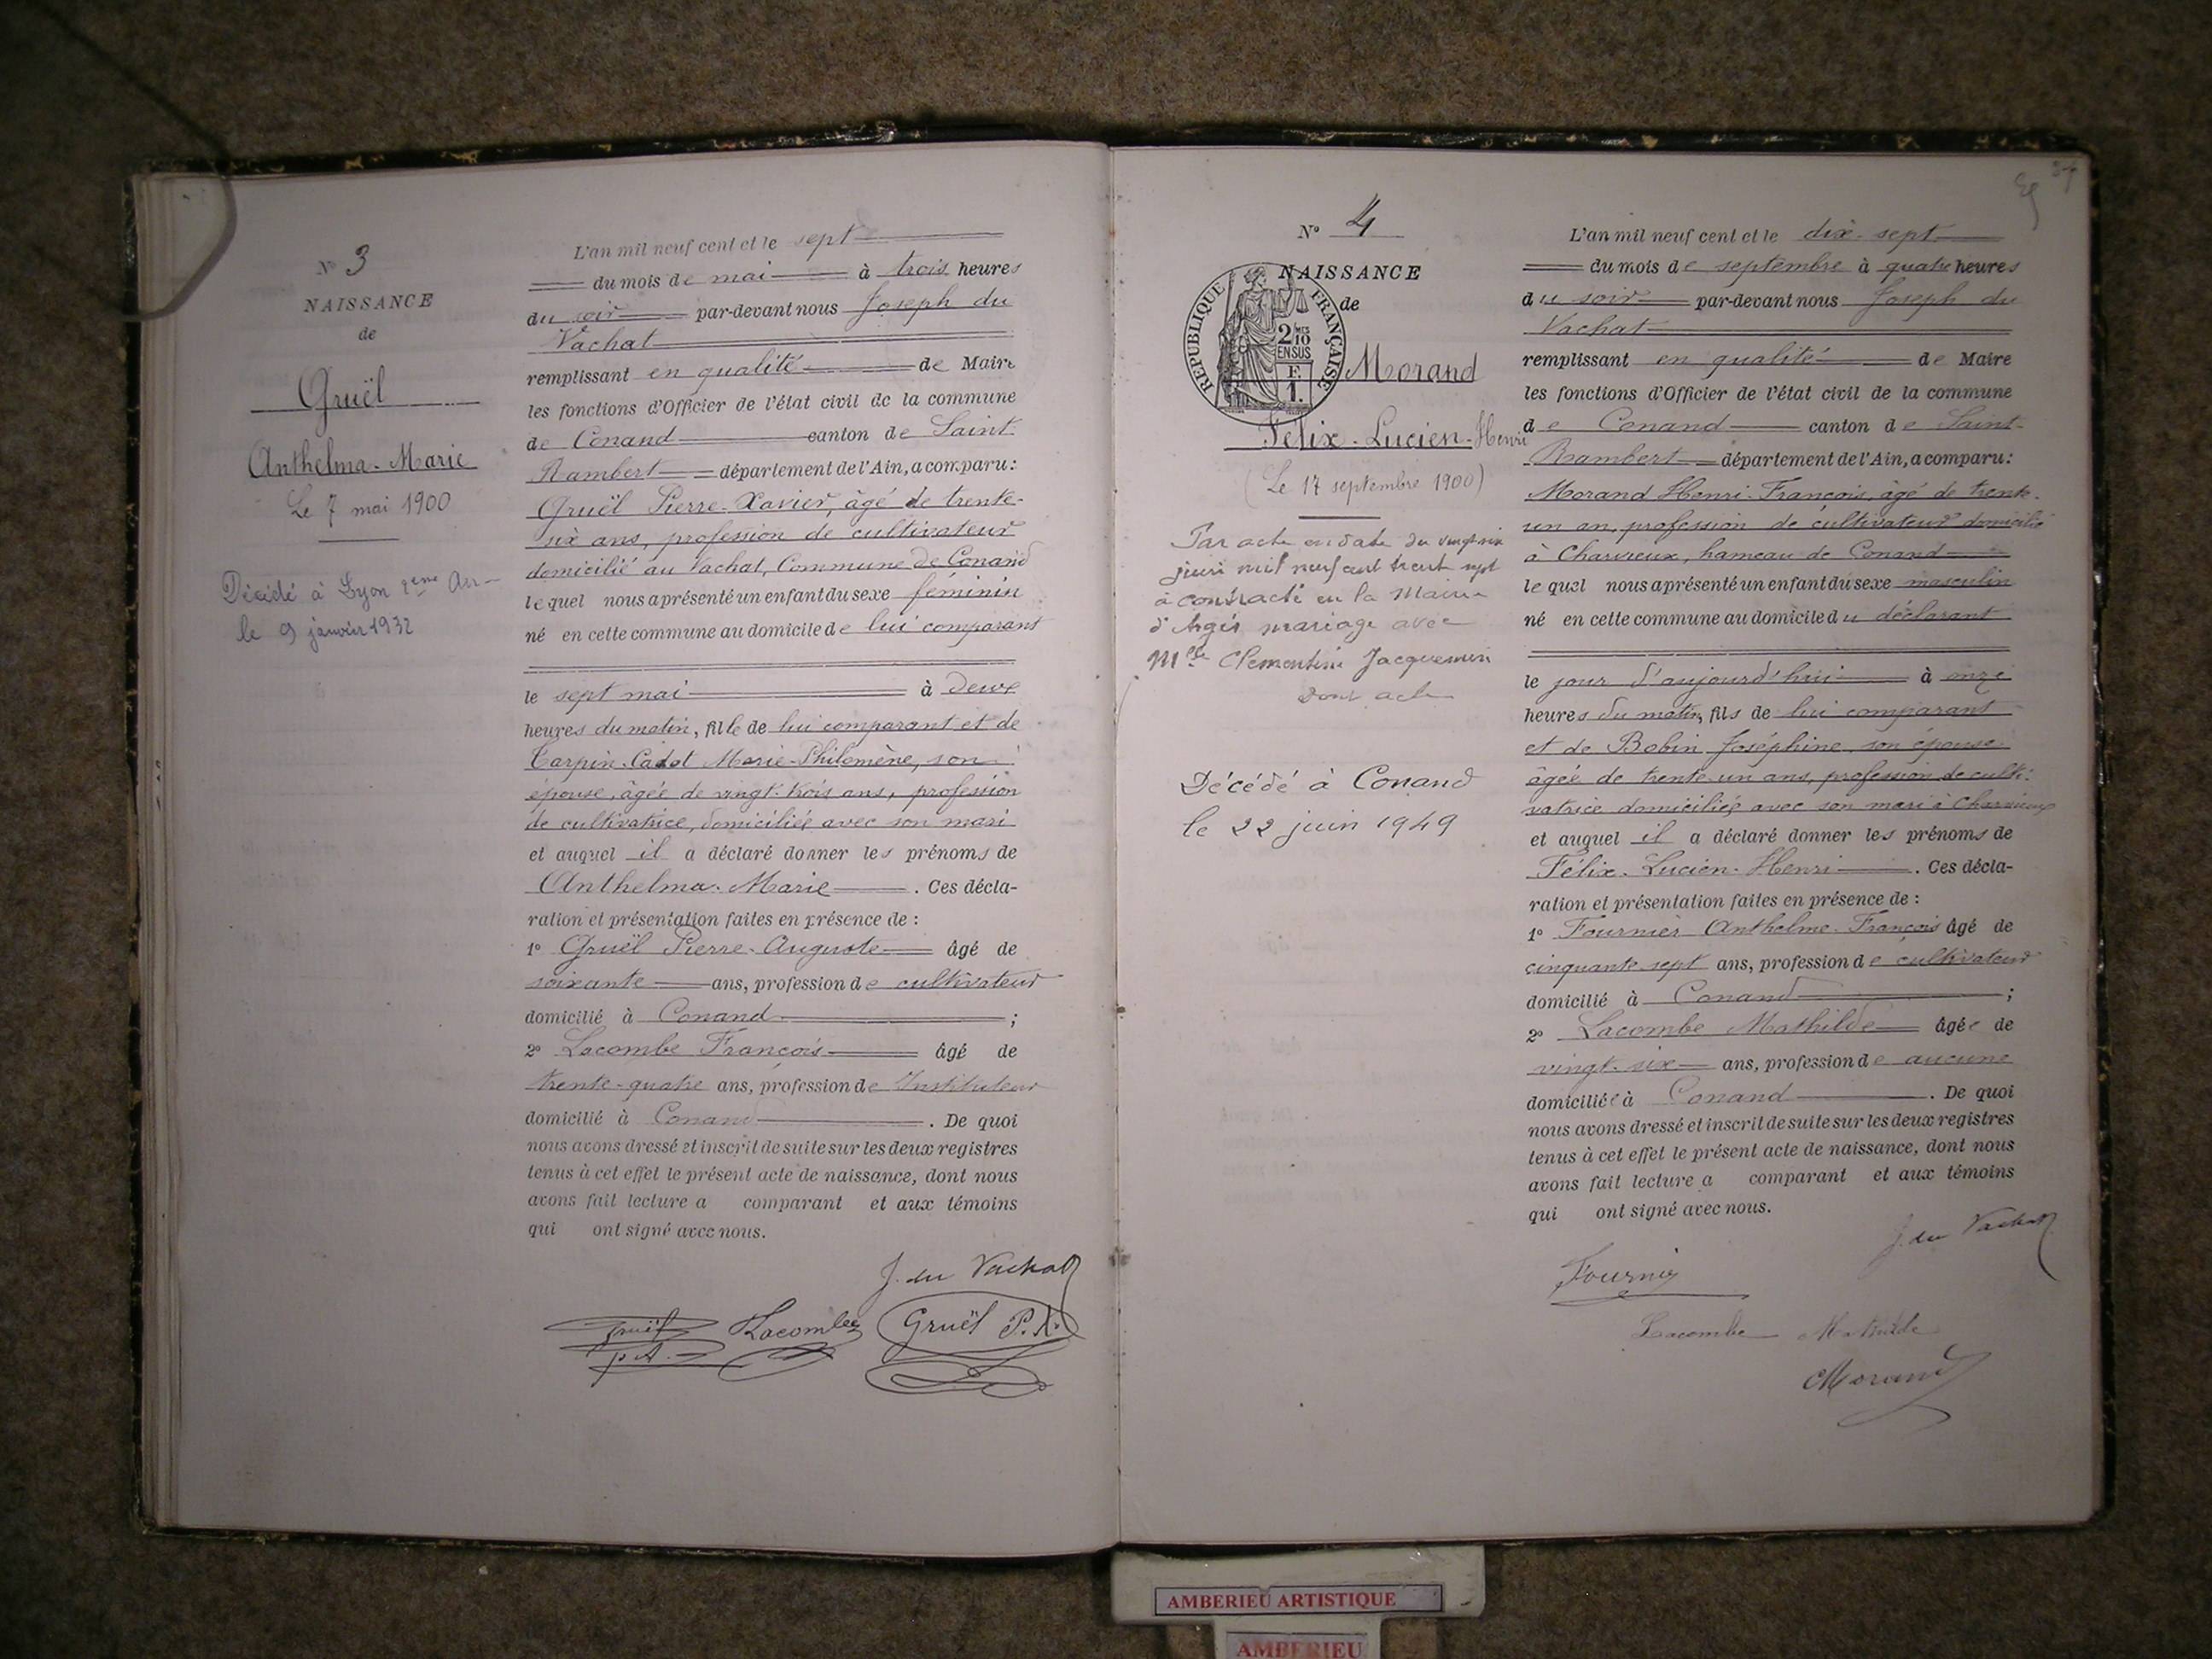 N° 3
NAISSANCE
de
Gruël
Anthelma-Marie
Le 7 mai 1900
Décédé à Lyon 2eme Arr-
le 9 janvier 1932
L'an mil neuf cent et le sept
du mois de mai à trois heures
du soir par-devant nous Joseph du
Vachat
remplissant en qualité de Maire
les fonctions d'Officier de l'état civil de la commune
de Conand canton de Saint
Rambert département de l'Ain, a comparu:
Gruël Pierre-Xavier, âgé de trente-
six ans, profession de cultivateur
domicilié au Vachat, Commune de Conand
lequel nous a présenté un enfant du sexe féminin
né en cette commune au domicile de lui comparant
le sept mai à deux
heures du matin, fille de lui comparant et de
Carpin-Cadot Marie-Philomène, son
épouse, âgée de vingt-trois ans, profession
de cultivatrice, domiciliée avec son mari
et auquel il a déclaré donner les prénoms de
Anthelma-Marie. Ces décla-
ration et présentation faites en présence de :
1° Gruël Pierre-Auguste âgé de
soixante ans, profession de cultivateur
domicilié à Conand ;
2° Lacombe François âgé de
trente-quatre ans, profession de Instituteur
domicilié à Conand. De quoi
nous avons dressé et inscrit de suite sur les deux registres
tenus à cet effet le présent acte de naissance, dont nous
avons fait lecture a comparant et aux témoins
qui ont signé avec nous.
J. du Vachat
Gruël P.A. Lacombe Gruël P.X.
N° 4
NAISSANCE
de
RÉPUBLIQUE FRANÇAISE
2/10 MES
EN SUS
F.
1.
Morand
Félix-Lucien-Henri
(Le 17 septembre 1900)
Par acte en date du vingt-six
juin mil neuf cent trente sept
a contracté en la Mairie
d'Argis mariage avec
Melle Clémentine Jacquemin
dont acte
Décédé à Conand
le 22 juin 1949
L'an mil neuf cent et le dix-sept
du mois de septembre à quatre heures
du soir par-devant nous Joseph du
Vachat
remplissant en qualité de Maire
les fonctions d'Officier de l'état civil de la commune
de Conand canton de Saint-
Rambert département de l'Ain, a comparu:
Morand Henri-François, âgé de trente-
un an, profession de cultivateur domicilié
à Charvieux, hameau de Conand
lequel nous a présenté un enfant du sexe masculin
né en cette commune au domicile du déclarant
le jour d'aujourd'hui à onze
heures du matin, fils de lui comparant
et de Bobin Joséphine, son épouse
âgée de trente-un ans, profession de culti-
vatrice domiciliée avec son mari à Charvieux
et auquel il a déclaré donner les prénoms de
Félix-Lucien-Henri. Ces décla-
ration et présentation faites en présence de :
1° Fournier Anthelme-François âgé de
cinquante-sept ans, profession de cultivateur
domicilié à Conand ;
2° Lacombe Mathilde âgée de
vingt-six ans, profession de aucune
domiciliée à Conand. De quoi
nous avons dressé et inscrit de suite sur les deux registres
tenus à cet effet le présent acte de naissance, dont nous
avons fait lecture a comparant et aux témoins
qui ont signé avec nous.
J. du Vachat
Fournier
Lacombe Mathilde
Morand
AMBERIEU ARTISTIQUE
AMBERIEU